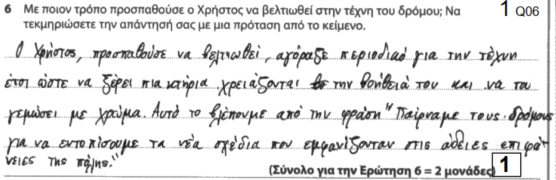 6 Με ποιον τρόπο προσπαθούσε ο Χρήστος να βελτιωθεί στην τέχνη του δρόμου; Να
τεκμηριώσετε την απάντησή σας με μια πρόταση από το κείμενο.
1 Q06
Ο Χρήστος, προσπαθούσε να βελτιωθεί, αγόραζε περιοδικό για την τέχνη
έτσι ώστε να ξέρει πια κτήρια χρειάζονται την βοήθειά του και να τα
γεμώσει με χρώμα. Αυτό το βλέπουμε από την φράση "Παίρναμε τους δρόμους
για να εντοπίσουμε τα νέα σχέδια που εμφανίζονταν στις άθειες επιφά-
νειες της πόλης."
(Σύνολο για την Ερώτηση 6 = 2 μονάδες) 1